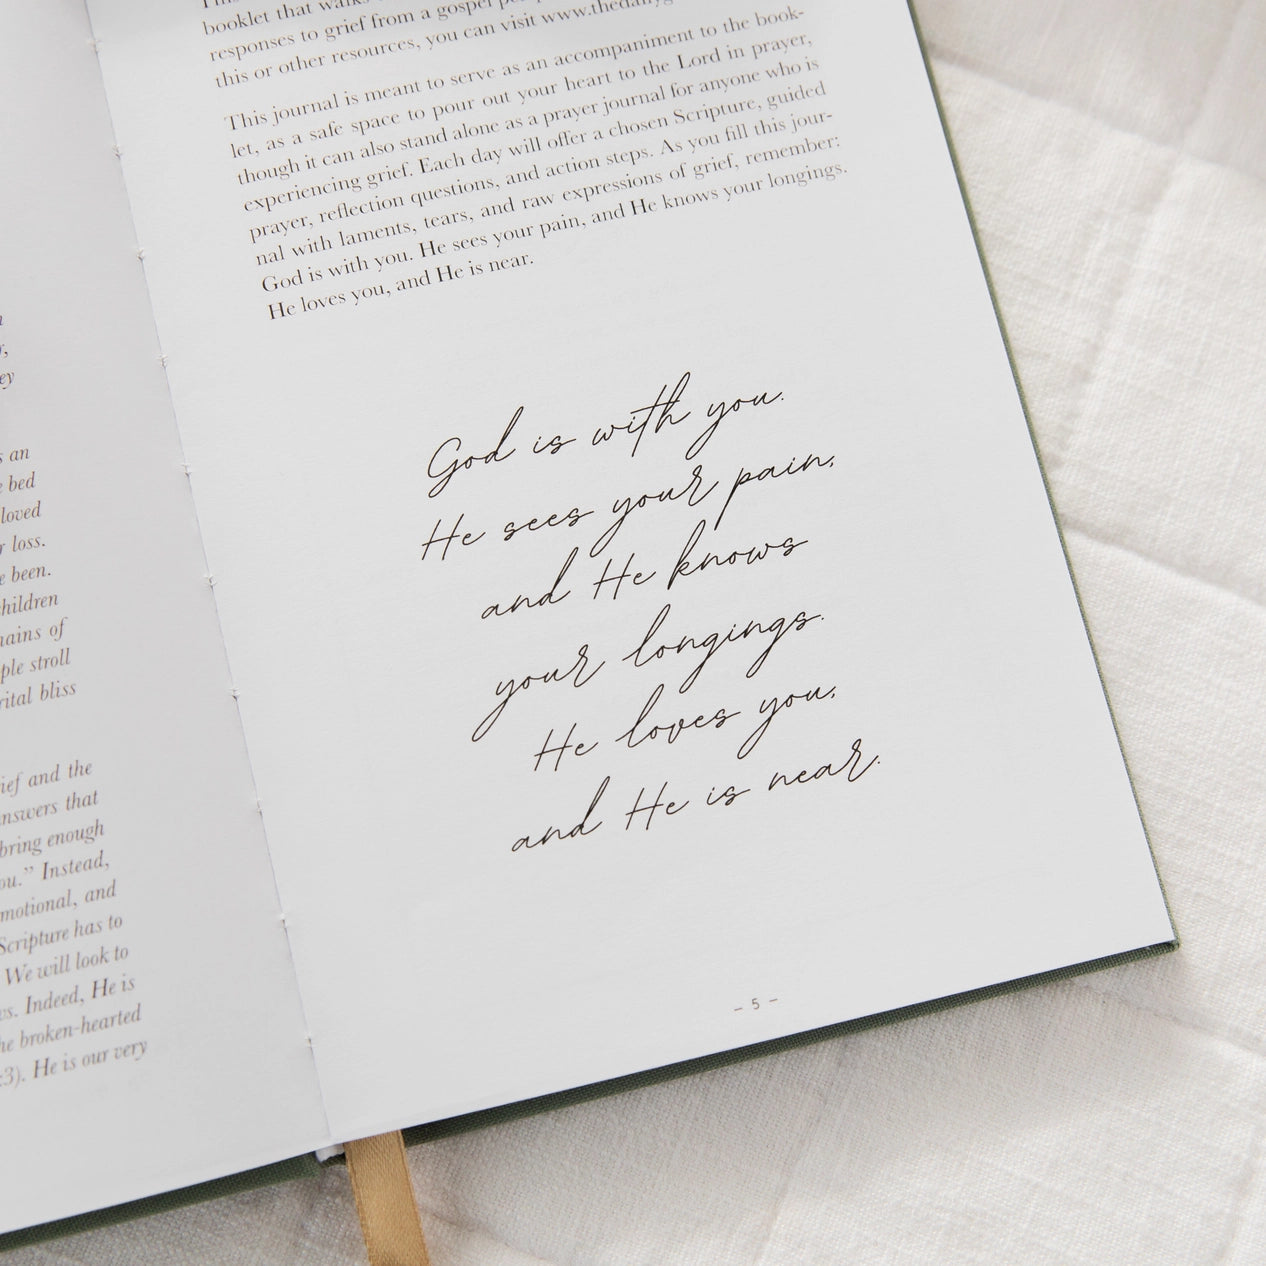 s an
bed
loved
loss.
been.
children
ple stroll
bliss
and the
answers that
bring enough
Instead,
and
Scripture has to
We will look to
Indeed, He is
broken-hearted
:3). He is our very
booklet that walks
responses to grief from a gospel
this or other resources, you can visit
This journal is meant to serve as an accompaniment to the book-
let, as a safe space to pour out your heart to the Lord in prayer,
though it can also stand alone as a prayer journal for anyone who is
experiencing grief. Each day will offer a chosen Scripture, guided
prayer, reflection questions, and action steps. As you fill this jour-
nal with laments, tears, and raw expressions of grief, remember:
God is with you. He sees your pain, and He knows your longings.
He loves you, and He is near.
God is with you.
He sees your pain,
and He knows
your longings.
He loves you,
and He is near.
– 5 –